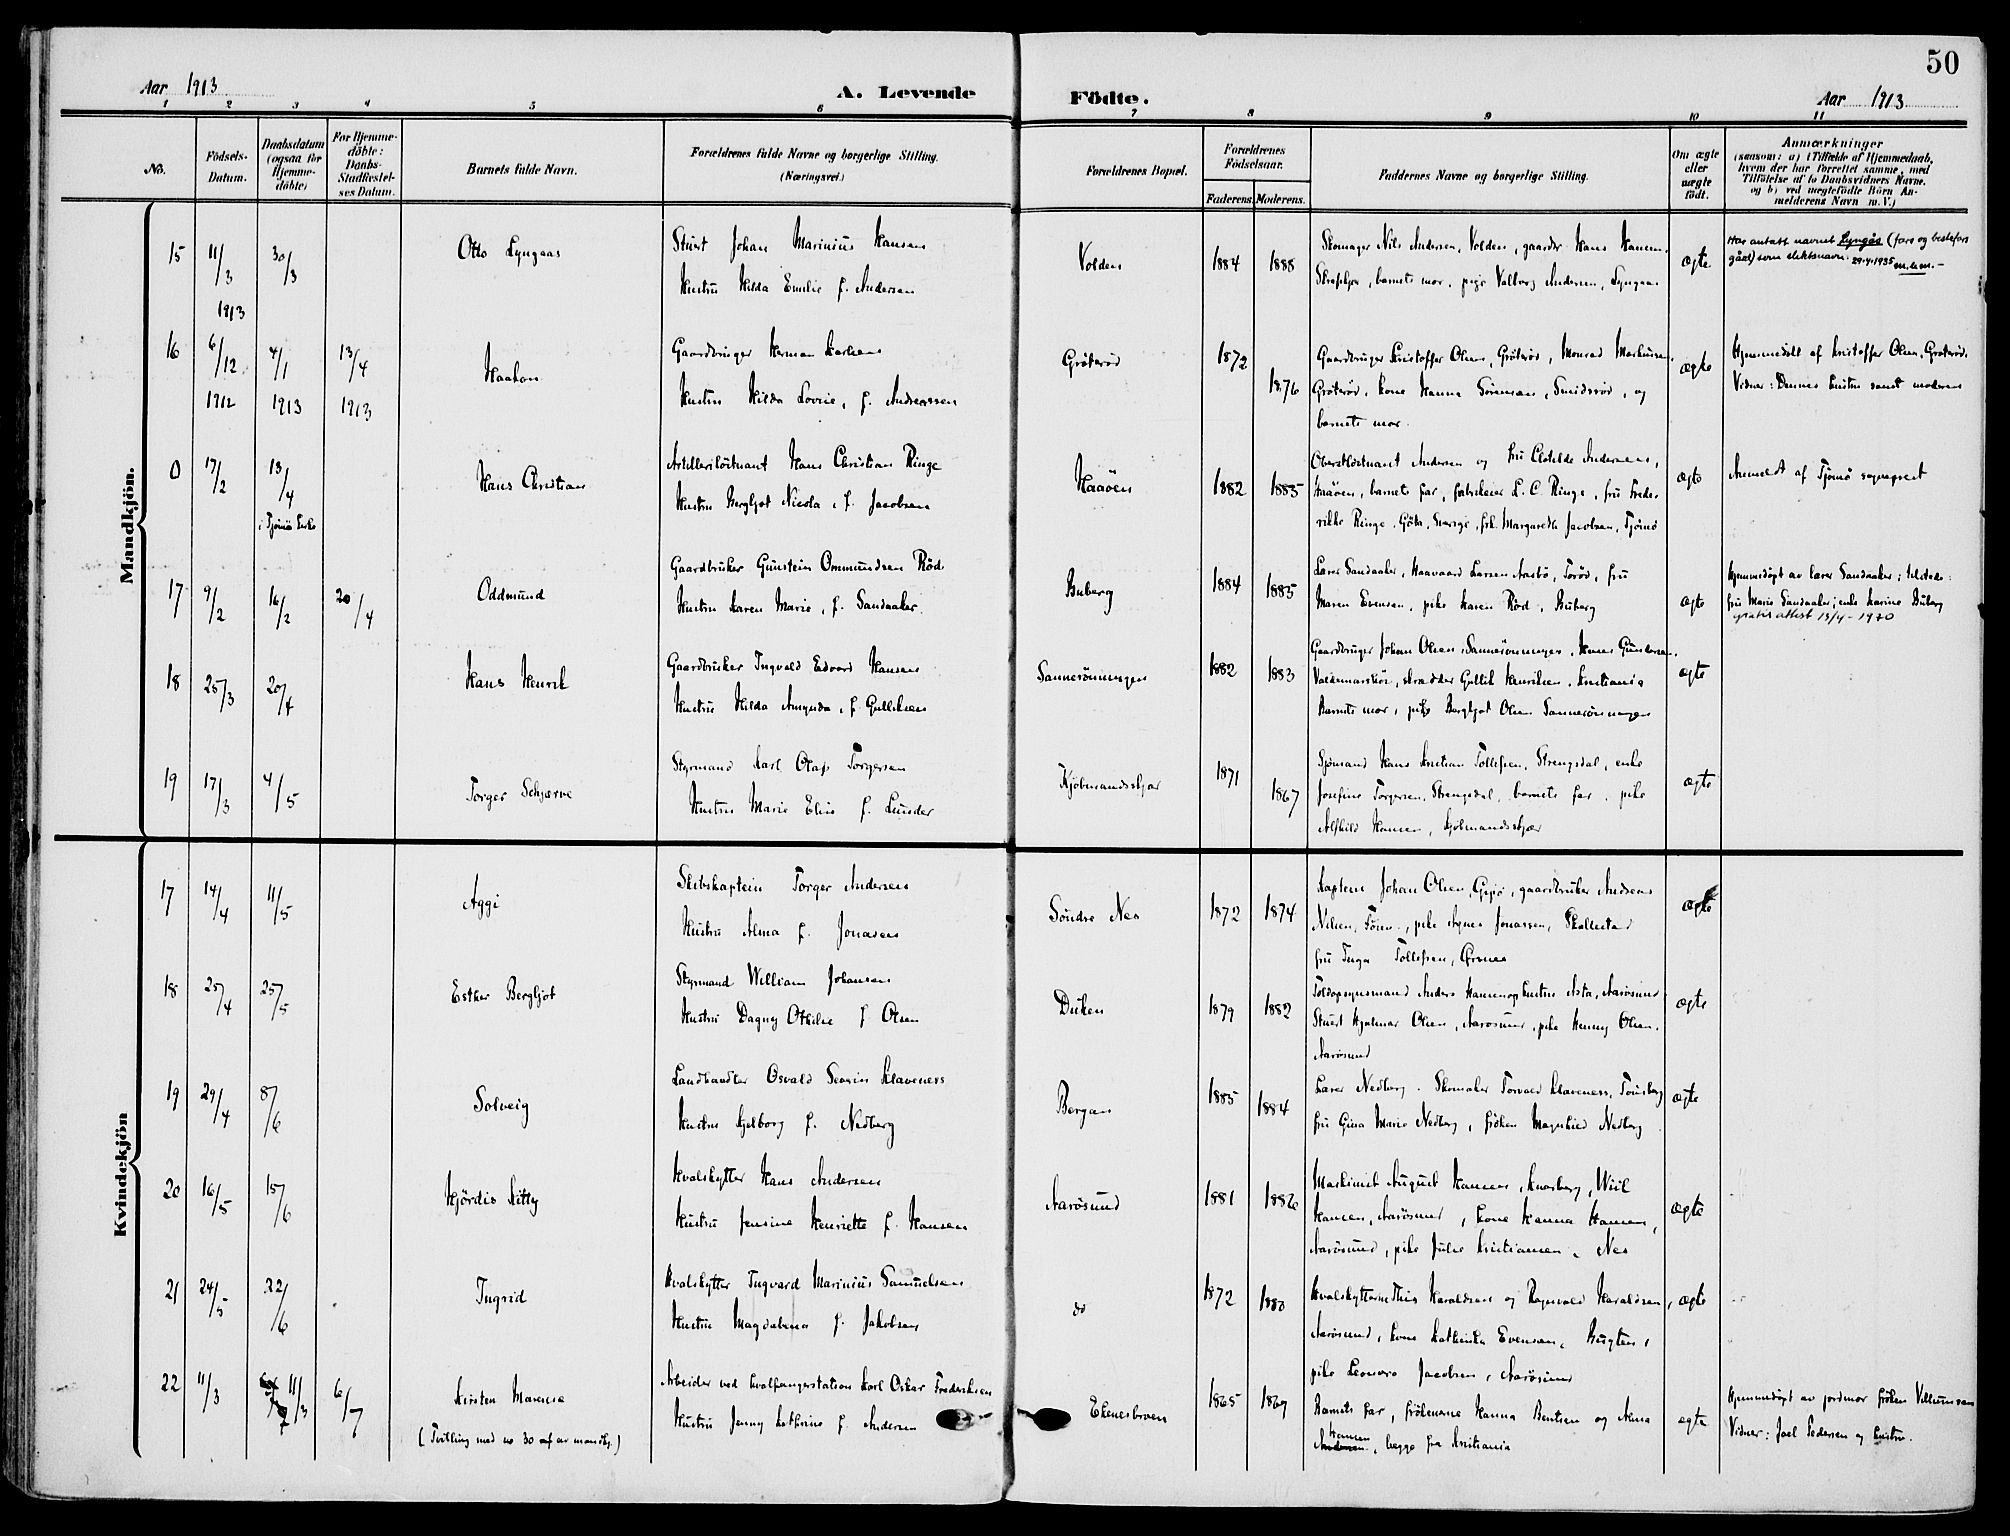 50
Aar 1913
A. Levende Födte.
Aar 1913
1 2 3 4 5 6 7 8 9 10 11
No.
Födsels-
Datum.
Daabsdatum
(ogsaa for
Hjemme-
döbte)
For Hjemme-
döbte:
Daabs-
Stadfæstel-
ses Datum.
Barnets fulde Navn.
Forældrenes fulde Navne og borgerlige Stilling.
(Næringsvei.)
Forældrenes Bopæl.
Forældrenes
Födselsaar.
Faderens. Moderens.
Faddernes Navne og borgerlige Stilling.
Om ægte
eller
uægte
födt.
Anmærkninger
(saasom: a) i Tilfælde af Hjemmedaab,
hvem der har forrettet samme, med
Tilföielse af to Daabsvidners Navne,
og b) ved uægtefödte Börn An-
melderens Navn m. V.)
Mandkjön.
15 11/3 30/3 Otto Lyngaas
1913
Stuert Johan Marinius Hansen
Hustru Hilda Emilie f. Andersen
Volden 1884 1888
Skomager Nils Andersen, Volden, gaardbr Hans Hansen
barnets mor, pige Valborg Andersen, Lyngaas
ægte
Har antatt navnet Lyngås (fars og bestefars
gård) som slektsnavn. 29.4.1935
16 6/12 4/1 13/4 Haakon
1912 1913 1913
Gaardbruger Herman Karlsen
Hustru Hilda Lovise, f. Andreassen
Gröteröd 1872 1876
Gaardbruger Kristoffer Olsen, Gröteröd, Monrad Markussen
Gröteröd, kone Hanna Sörensen, Smidsröd, og
barnets mor.
ægte
Hjemmedöbt af Kristoffer Olsen, Gröteröd.
Vidner: Dennes hustru samt moderen
0 17/2 13/4 Hans Christian
i Tjömö kirke
Artilleriløitnant Hans Christian Ringe
Hustru Bergljot Nicola, f. Jacobsen
Haaöen 1882 1885
Oberstløitnant Andersen og fru Clotilde Andersen,
Haaöen, barnets far, fabrikeier L. C. Ringe, fru Frede-
rikke Ringe, Göta, Sverige, frk. Margarethe Jacobsen, Tjömö
ægte
Anmeldt af Tjömö sogneprest
17 9/2 16/2 20/4 Oddmund
Gaardbruker Gunstein Ommundsen Röd
Hustru Karen Marie, f. Sandaaker
Buberg 1884 1885
Lærer Sandaaker, Haavaard Larsen Aasbö, Toröd, fru
Maren Evensen, pike Karen Röd, Buberg
ægte
Hjemmedöpt av lærer Sandaaker; tilstede:
fru Marie Sandaaker; enke Karine Buberg
gratis attest 15/4-1940
18 25/3 20/4 Hans Henrik
Gaardbruker Ingvald Edvard Hansen
Hustru Hilda Amanda, f. Gulliksen
Sanneröningen 1882 1883
Gaardbruger Johan Olsen, Sanneröningen, Hans Gundersen,
skrædder Gullik Henriksen, Kristiania
Barnets mor, pike Bergljot Olsen Sanneröningen
ægte
19 17/3 4/5 Torger Schjærve
Styrmand Karl Olaf Torgersen
Hustru Marie Elise f. Lunder
Kjöbmandsskjær 1871 1867
Sjömand Hans Kristian Tollefsen, Strengsdal, enke
Josefine Torgersen, Strengsdal, barnets far, pike
Alfhild Hansen, Kjöbmandsskjær
ægte
Kvindekjön
17 14/4 11/5 Aggi
Skibskaptein Torger Andersen
Hustru Alma f. Jonassen
Söndre Nes 1872 1874
Kaptein Johan Olsen, gaardbruker Andreas
Nilsen, pike Agnes Jonassen, Skallestad
fru Inga Tollefsen
ægte
18 25/4 25/5 Esther Bergljot
Styrmand William Johansen
Hustru Dagny Othilie f. Olsen
Duken 1879 1882
Toldopsynsmand Anders Hansen og hustru Asta, Aarösund
Stuert Hjalmar Olsen, Aarösund, pike Henny Olsen,
Aarösund
ægte
19 29/4 8/6 Solveig
Landhandler Osvald Severin Klaveness
Hustru Kjelborg f. Nedberg
Bergan 1885 1884
Lærer Nedberg, Skomaker Torvald Klaveness, Tönsberg
fru Gina Marie Nedberg, fröken Magnhild Nedberg
ægte
20 16/5 15/6 Hjördis Kitty
Hvalskytter Hans Andersen
Hustru Jensine Henriette f. Hansen
Aarösund 1881 1882
Maskinist August Hansen, Knarberg,
Hansen, Aarösund, kone Hanna Hansen,
Aarösund, pike Julie Kristiansen, Nes
ægte
21 24/5 22/6 Ingrid
Hvalskytter Ingvard Marinius Samuelsen
Hustru Magdalena f. Jakobsen
do 1872 1880
Hvalskytterne This Haraldsen og Ragnvald Haraldsen,
Aarösund, kone Kathinka Evensen, Bugten,
pike Leonore Jacobsen, Aarösund
ægte
22 11/3 11/3 6/7 Kirsten Marense
(Tvilling med no 30 af av mandkj.)
Arbeider ved hvalfangerstation Karl Oskar Fredriksen
Hustru Jenny Kathrine f. Andersen
Ekenesbroen 1865 1869
Barnets far, frökenerne Hanna Bentsen og Alma
Hansen
Andersen, begge fra Kristiania
ægte
Hjemmedöpt av jordmor fröken Villumsen
Vidner: Joel Pedersen og hustru.